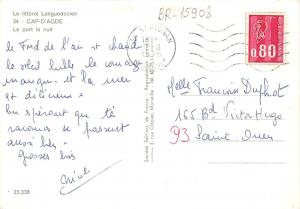 Le littoral Languedocien
34 - CAP-D'AGDE
Le port la nuit
BR-15908
0,80
le fond de l'air est chaud
le soleil brille le courage
manque. et la mer
est délicieuse
En espérant que ta
se passent
aussi bien
Grosses bises
Melle Françoise Duphot
165 Bd Victor Hugo
93 Saint-Ouen
33.338